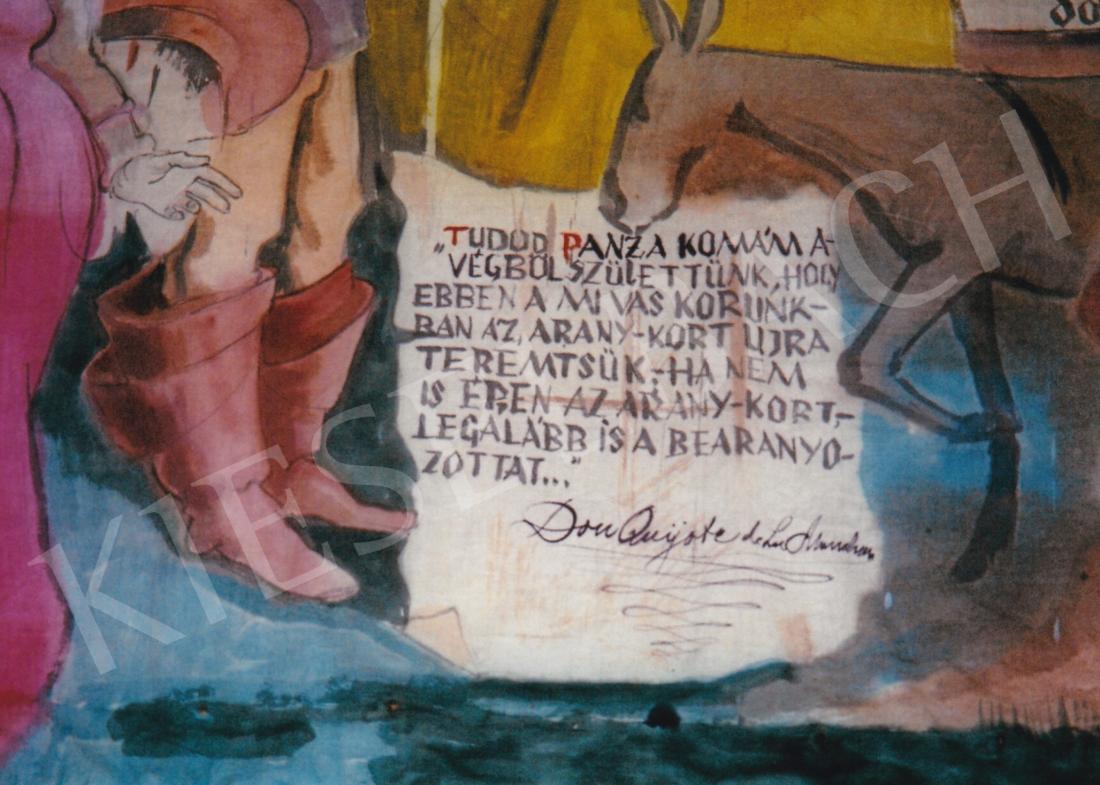 do
„TUDOD PANZA KOMÁM A-
VÉGBŐL SZÜLETTÜNK, HOGY
EBBEN A MI VAS KORUNK-
BAN AZ, ARANY-KORT UJRA
TEREMTSÜK,-HA NEM
IS ÉPEN AZ ARANY-KORT,-
LEGALÁBB IS A BEARANYO-
ZOTTAT..."
Don Quijote de La Mancha
KIESELBACH